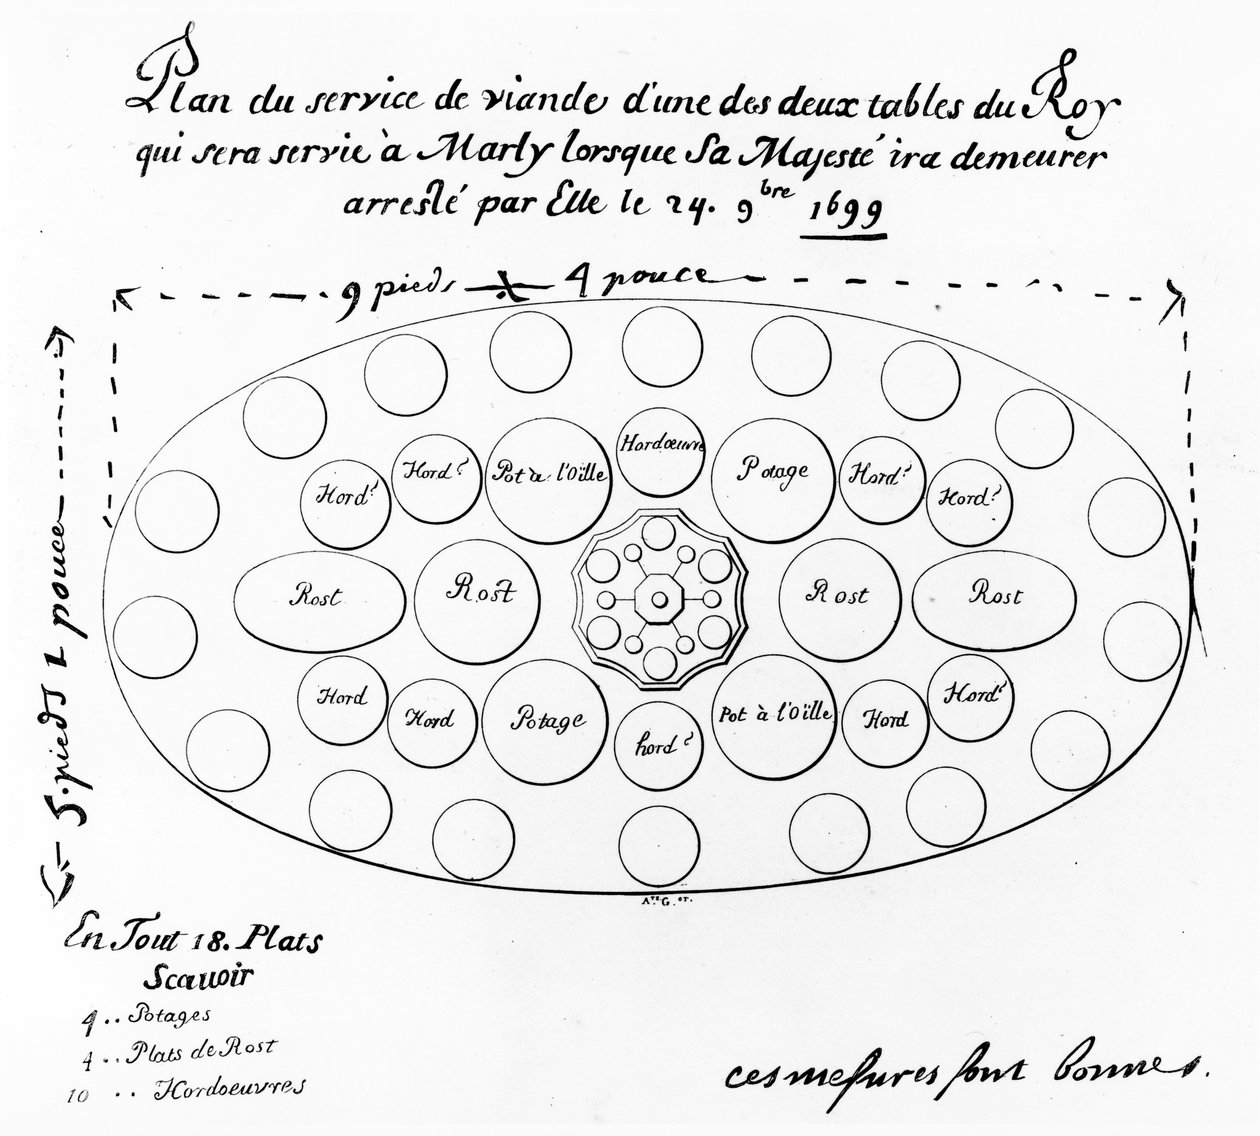 Plan du service de viande d'une des deux tables du Roy
qui sera servie à Marly lorsque Sa Majesté ira demeurer
arresté par Elle le 24. 9bre 1699
9 pieds 4 pouce
5. pieds 2 pouce
Hordœuvre
Pot à l'Oïlle
Potage
Hord?
Hord?
Hord?
Hord?
Rost
Rost
Rost
Rost
Hord
Hord
Potage
hord?
Pot à l'Oïlle
Hord
Hord?
A.te G.or.
En Tout 18. Plats
Scauoir
4 .. Potages
4 .. Plats de Rost
10 .. Hordoeuvres
ces mesures sont bonnes.